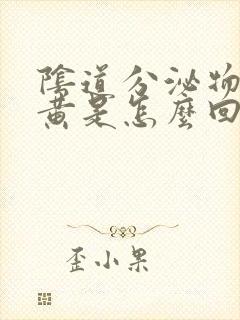 陰道分泌物
黃是怎麼回
歪小果